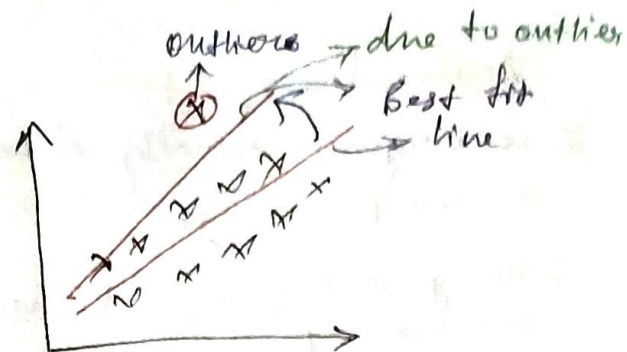 outliers
due to outlier
Best fit
line